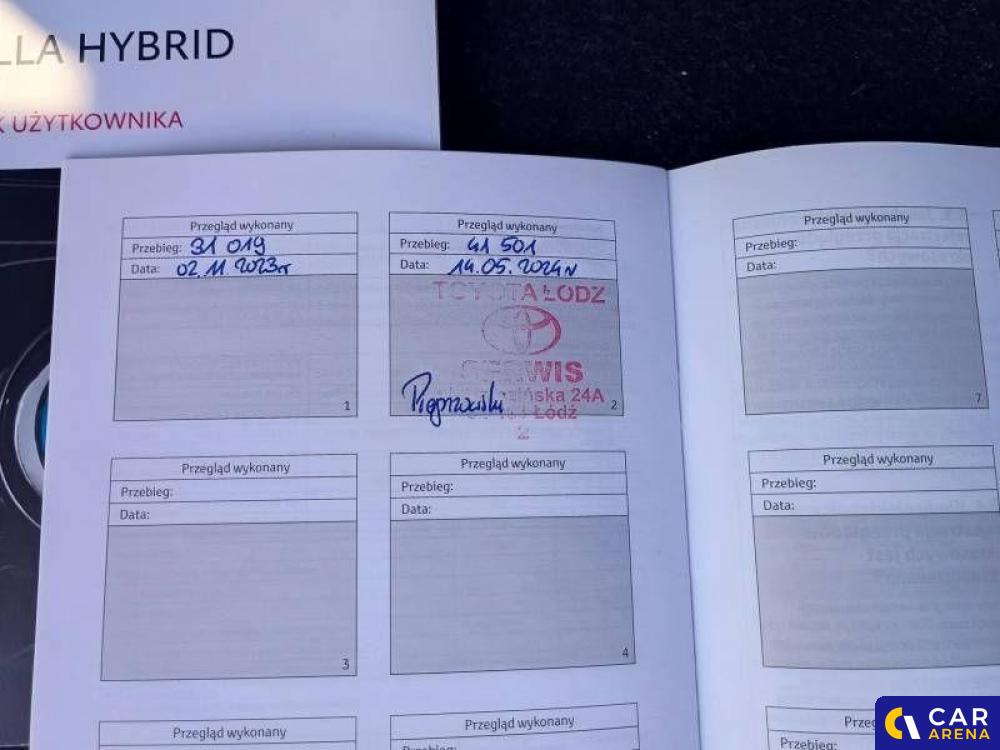 LLA HYBRID
K UŻYTKOWNIKA
Przegląd wykonany
Przebieg: 31 019
Data: 02.11 2023r
1
Przegląd wykonany
Przebieg: 41 501
Data: 14.05.2024r
TOYOTA ŁÓDZ
SERWIS
ska 24A
Łódź
2
2
Przegląd wykonany
Przebieg:
Data:
3
Przegląd wykonany
Przebieg:
Data:
4
Przegląd wykonany
Przegląd wykonany
Przegląd wykonany
Przebieg:
Data:
7
Przegląd wykonany
Przebieg:
Data:
Przeg
Przebieg:
CAR
ARENA